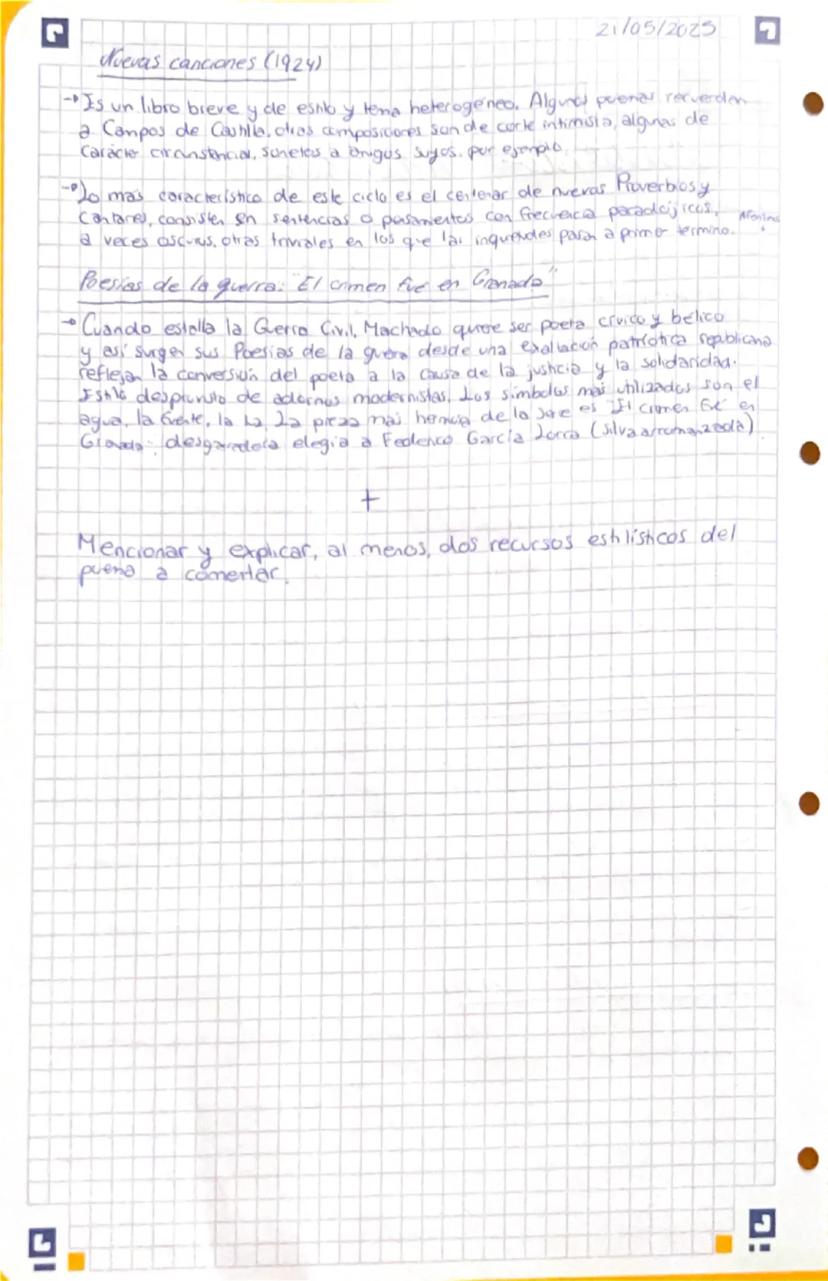 21/05/2025
Nuevas canciones (1924)
→ Es un libro breve y de estilo y tema heterogéneo. Algunos poemas recuerdan
a Campos de Castilla, otras composiciones son de corte intimista, algunas de
carácter circunstancial, sonetos a amigos suyos, por ejemplo.
→ Lo más característico de este ciclo es el centenar de nuevas Proverbios y
Cantares, consisten en sentencias o pensamientos con frecuencia paradójicas,
a veces oscuras, otras triviales en los que las inquietudes pasan a primer termino.
Poesías de la guerra: "El crimen fue en Granada"
→ Cuando estalla la Guerra Civil, Machado quiere ser poeta cívico y bélico
y así surgen sus Poesías de la guerra desde una exaltación patriótica republicana
reflejan la conversión del poeta a la causa de la justicia y la solidaridad.
Estilo desprovisto de adornos modernistas. Los símbolos más utilizados son el
agua, la fuente, la La pieza más de la serie es "El crimen fue en
Granada": desgarradora elegía a Federico García Lorca (silva arromanzada)
+
Mencionar y explicar, al menos, dos recursos estilísticos del
poema a comentar.